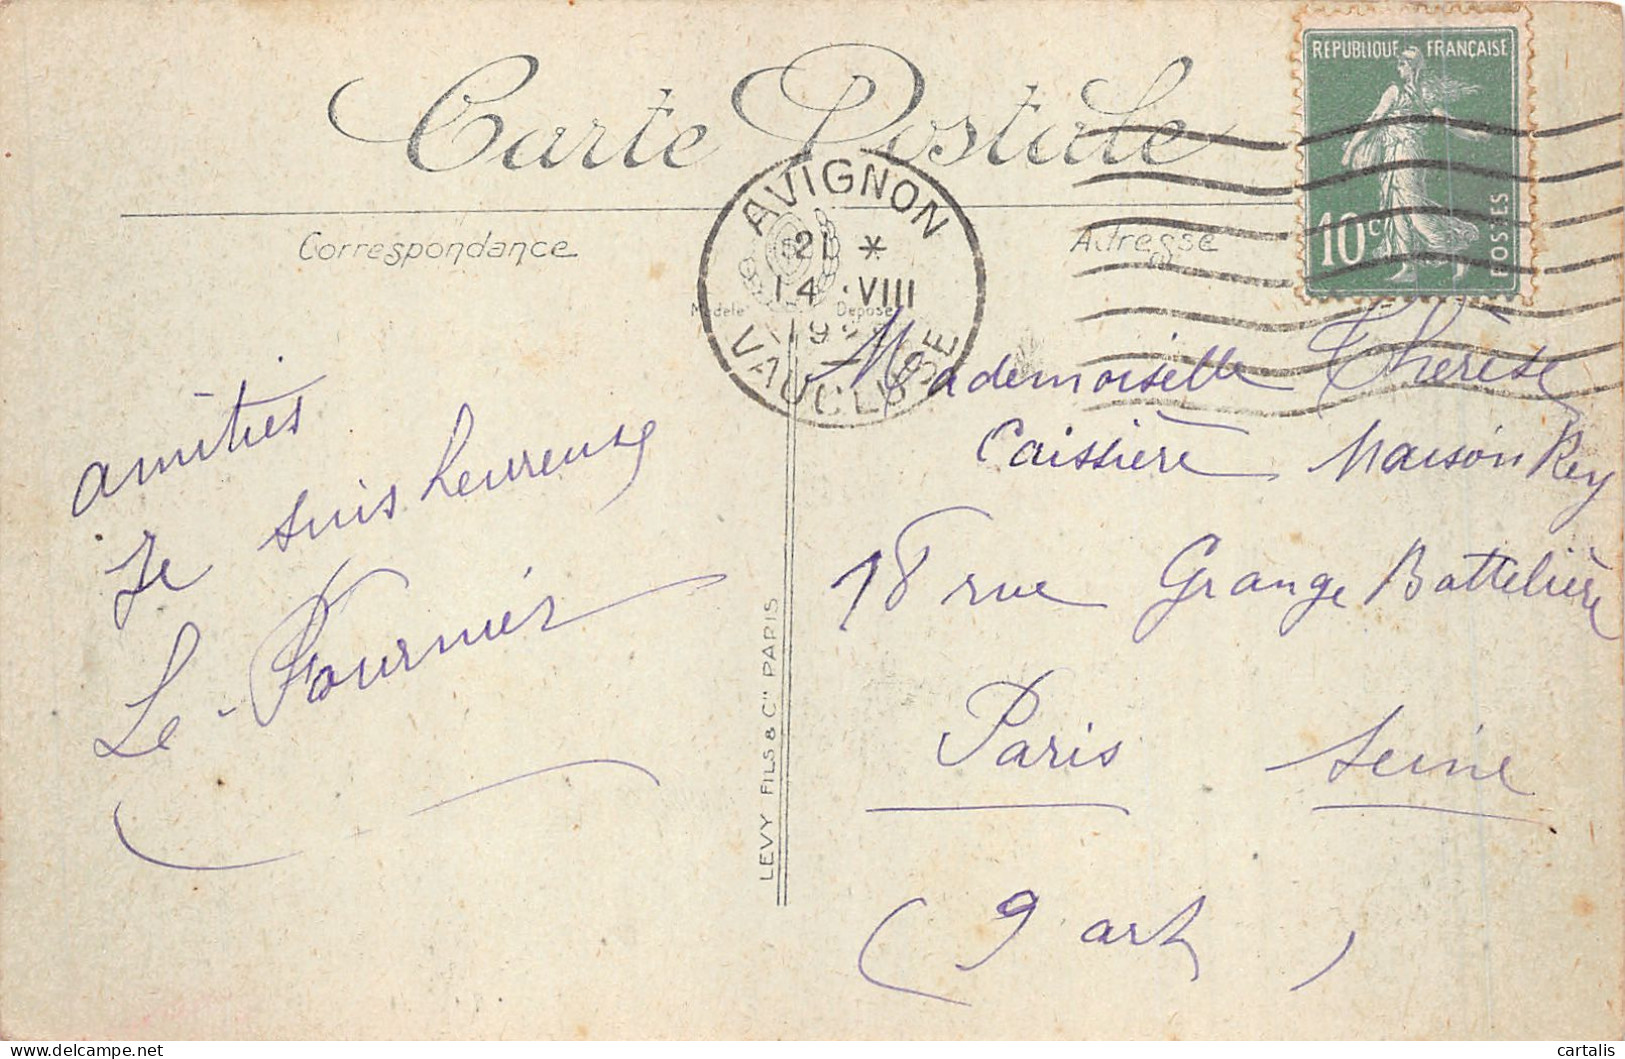 Carte Postale
REPUBLIQUE FRANÇAISE
10c
POSTES
AVIGNON
21 *
14 VIII
VAUCLUSE
Correspondance
Adresse
Modèle Déposé
amitiés
Je suis heureuse
Le Fournier
LEVY FILS & Cie PARIS
Mademoiselle Thérèse
Caissière Maison Rey
18 rue Grange Battelière
Paris Seine
(9 art)
cartalis